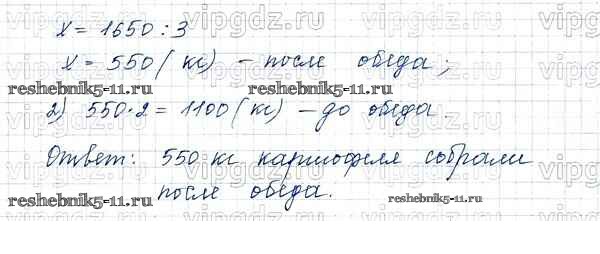 x = 1650 : 3
x = 550 (кг) – после обеда;
reshebnik5-11.ru reshebnik5-11.ru
2) 550·2 = 1100 (кг) – до обеда.
Ответ: 550 кг картофеля собрали
после обеда.
reshebnik5-11.ru reshebnik5-11.ru
vipgdz.ru vipgdz.ru vipgdz.ru